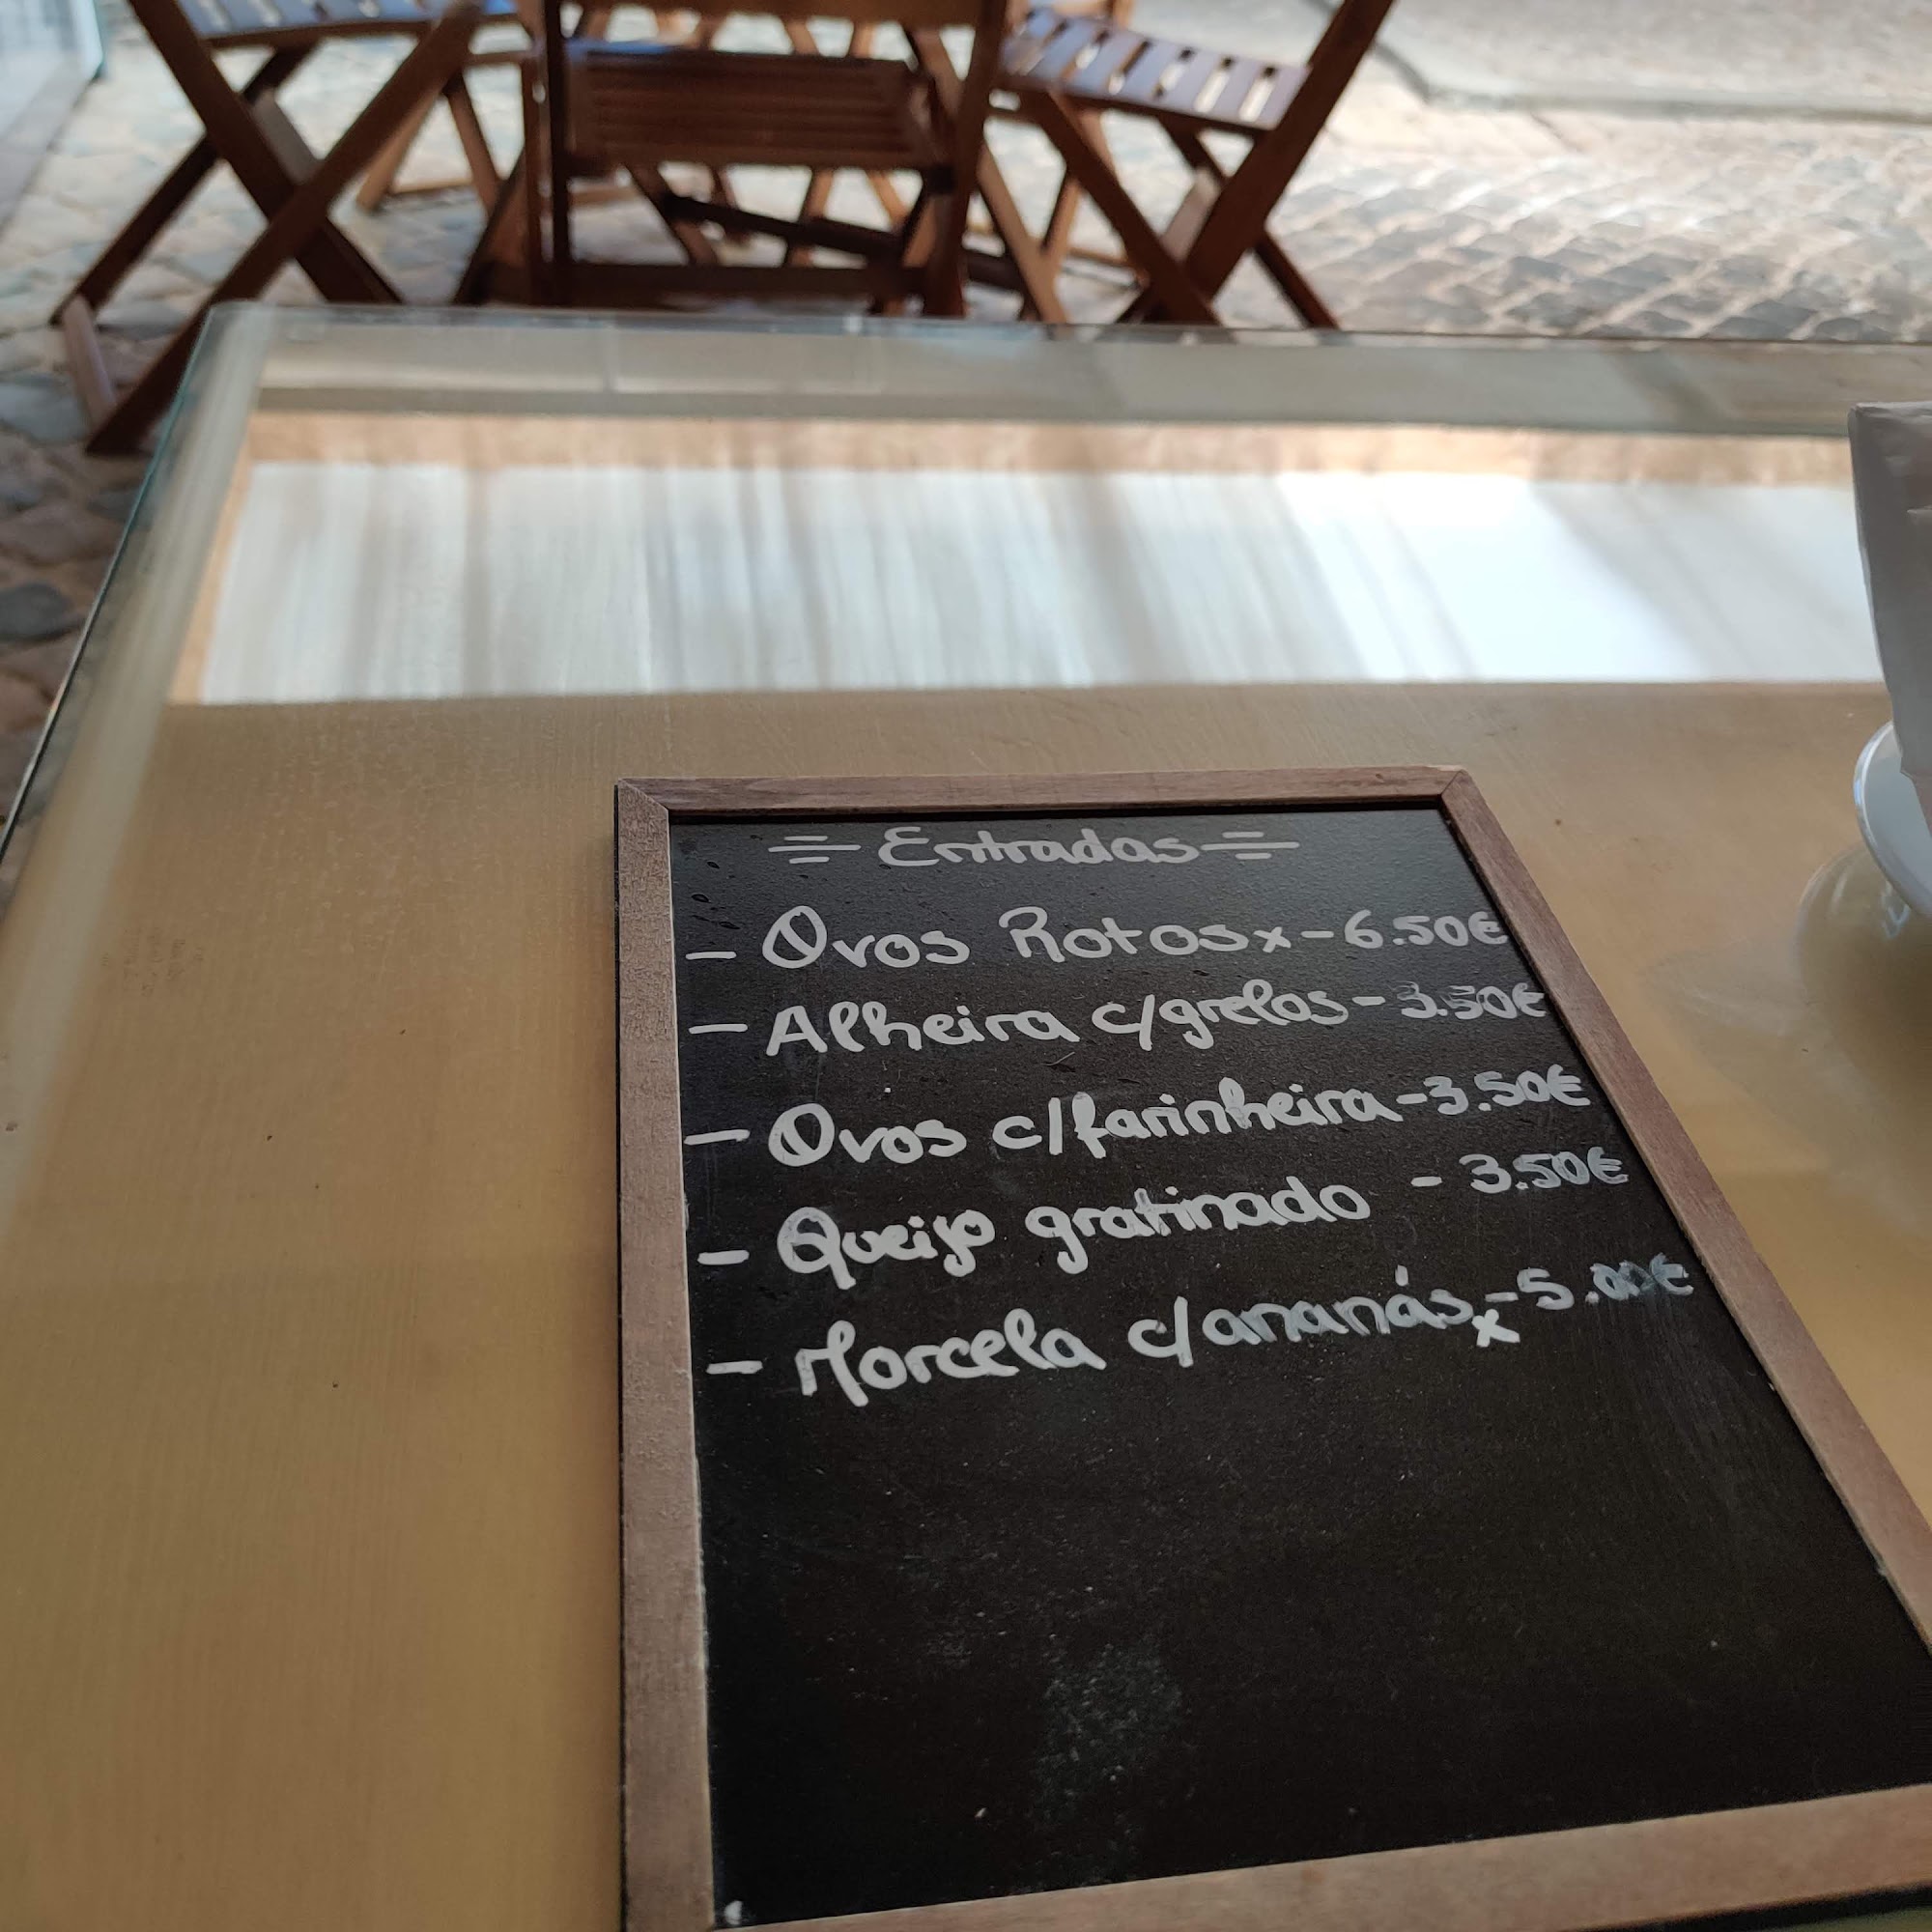 = Entradas =
- Ovos Rotos x - 6.50€
- Alheira c/grelos - 3.50€
- Ovos c/farinheira - 3.50€
- Queijo gratinado - 3.50€
- Morcela c/ananás x - 5.00€